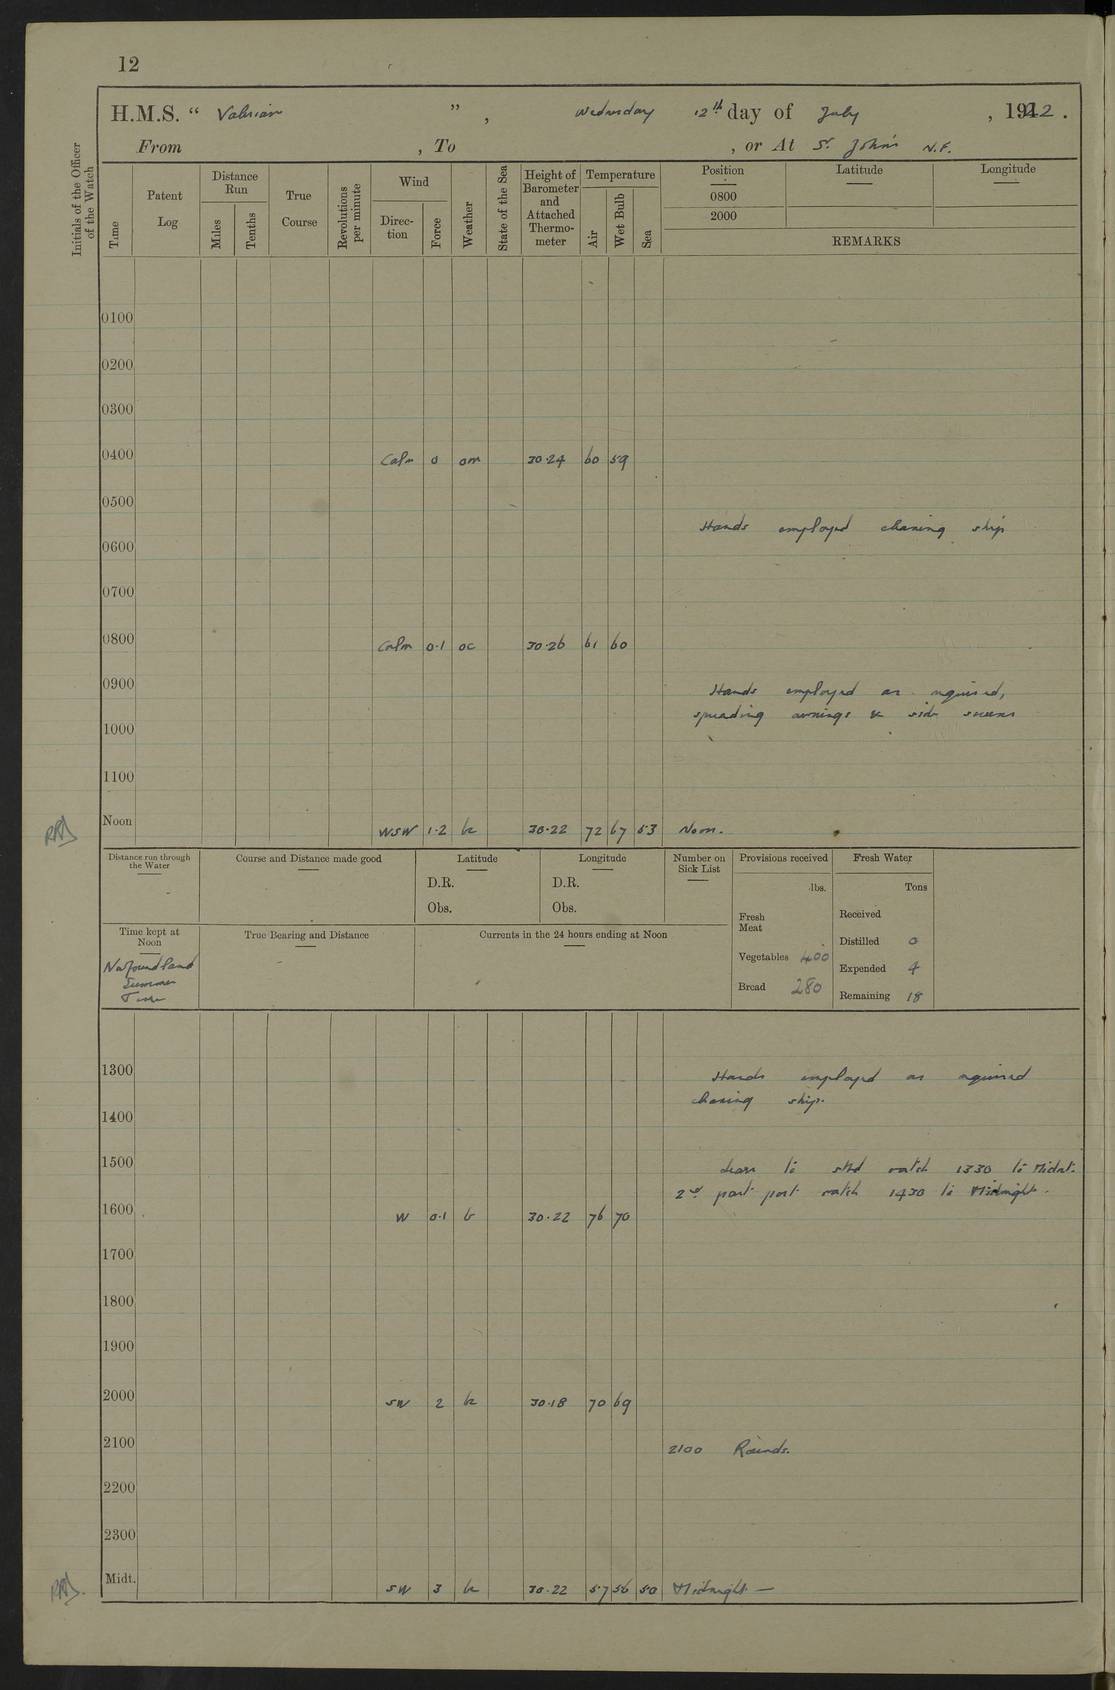 12
H.M.S. “ Valerian ”, Wednesday 12th day of July, 1922.
From , To , or At St. John's N.F.
Initials of the Officer of the Watch
Time
Patent Log
Distance Run
Miles
Tenths
True Course
Revolutions per minute
Wind
Direc-tion
Force
Weather
State of the Sea
Height of Barometer and Attached Thermo-meter
Temperature
Air
Wet Bulb
Sea
Position Latitude Longitude
0800
2000
REMARKS
0100
0200
0300
0400 Calm 0 om 30.24 60 59
0500
Hands employed cleaning ship
0600
0700
0800 Calm 0.1 oc 30.26 61 60
0900 Hands employed as required,
spreading awnings & side screens
1000
1100
Noon WSW 1.2 bc 30.22 72 67 53 Noon.
Distance run through the Water
Course and Distance made good
Latitude
D.R.
Obs.
Longitude
D.R.
Obs.
Number on Sick List
Provisions received
lbs.
Fresh Meat
Vegetables 400
Bread 280
Fresh Water
Tons
Received
Distilled 0
Expended 4
Remaining 18
Time kept at Noon
Newfoundland
Summer
Time
True Bearing and Distance
Currents in the 24 hours ending at Noon
1300 Hands employed as required
cleaning ship.
1400
1500 Leave to stbd watch 1330 to Midnt.
2nd part port watch 1430 to Midnight.
1600 W 0.1 b 30.22 76 70
1700
1800
1900
2000 SW 2 bc 30.18 70 69
2100 2100 Rounds.
2200
2300
Midt. SW 3 bc 30.22 57 56 50 Midnight —